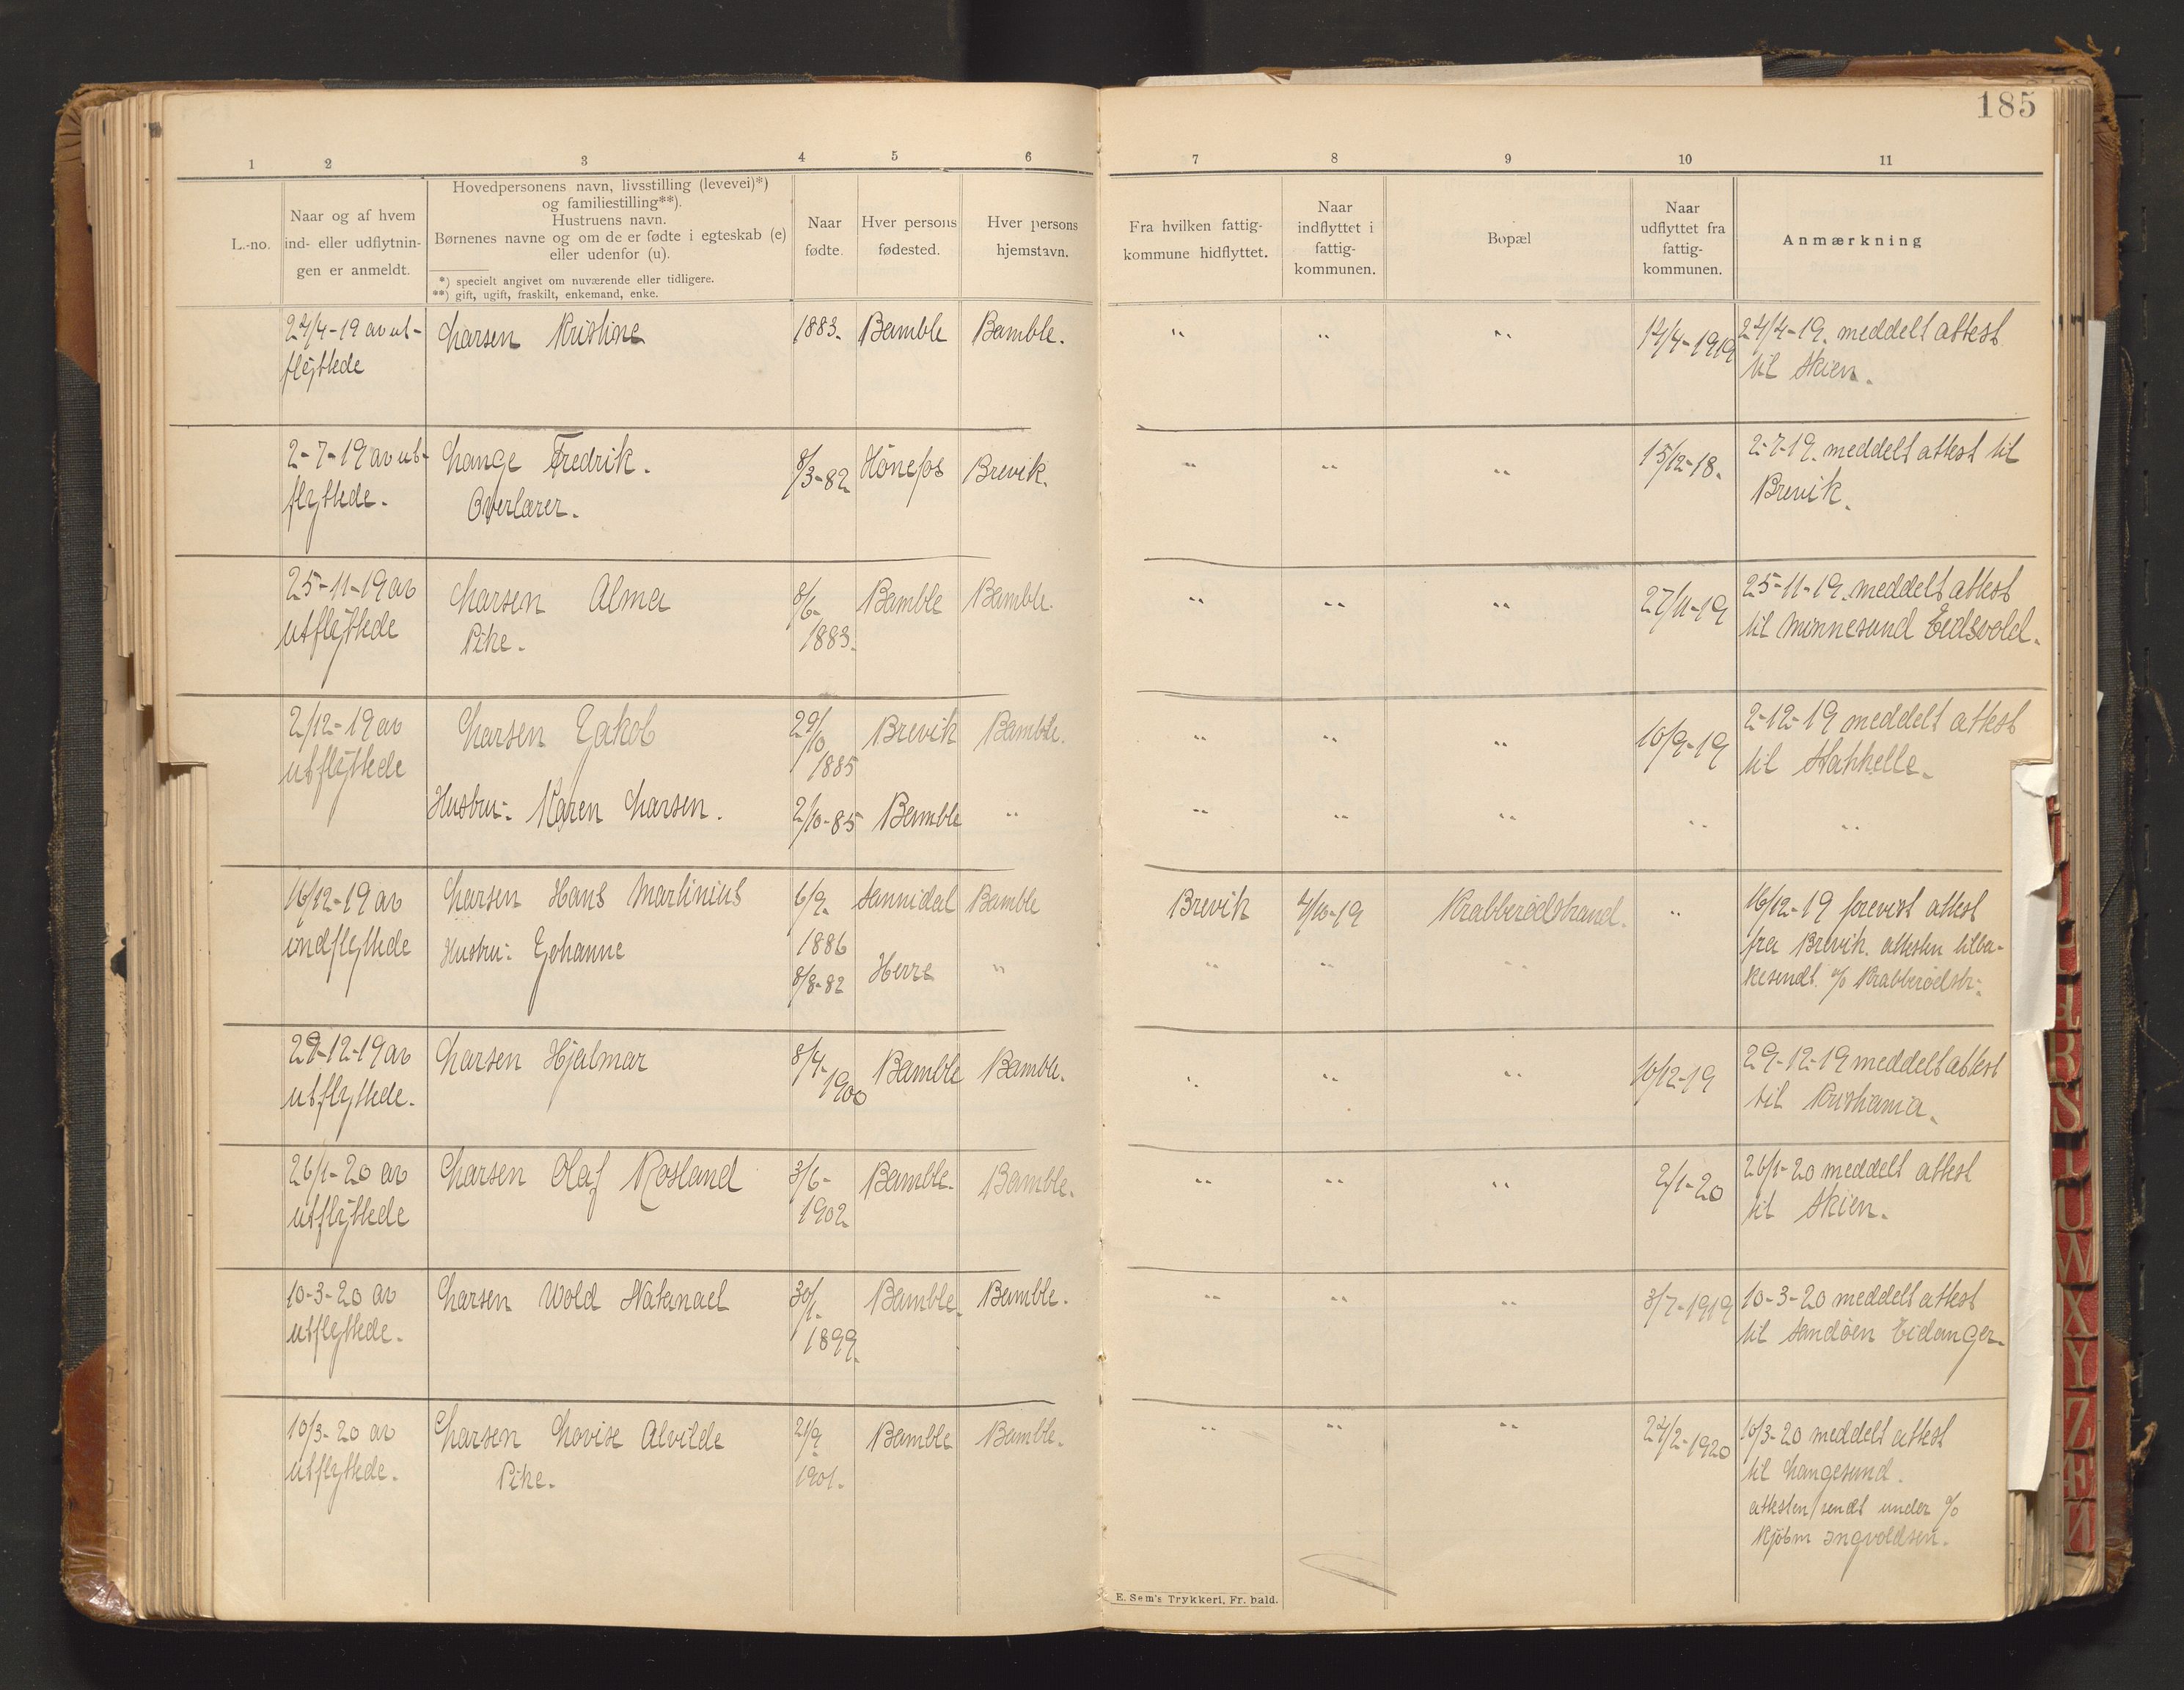 185
1 2 3 4 5 6 7 8 9 10 11
L.-no.
Naar og af hvem
ind- eller udflytnin-
gen er anmeldt.
Hovedpersonens navn, livsstilling (levevei)*)
og familiestilling**).
Hustruens navn.
Børnenes navne og om de er fødte i egteskab (e)
eller udenfor (u).
*) specielt angivet om nuværende eller tidligere.
**) gift, ugift, fraskilt, enkemand, enke.
Naar
fødte.
Hver persons
fødested.
Hver persons
hjemstavn.
Fra hvilken fattig-
kommune hidflyttet.
Naar
indflyttet i
fattig-
kommunen.
Bopæl
Naar
udflyttet fra
fattig-
kommunen.
Anmærkning
24/4-19 av ut- Larsen Kristine 1883. Bamble Bamble. " " " 14/4-1919 24/4-19. meddelt attest
flyttede til Skien.
2-7-19 av ut- Lange Fredrik. 8/3-82 Hönefos Brevik. " " " 15/12-18. 2-7-19. meddelt attest til
flyttede. Overlærer. Brevik.
25-11-19 av Larsen Alma 8/6- Bamble Bamble. " " " 27/11-19 25-11-19. meddelt attest
utflyttede Pike. 1883. til Minnesund Eidsvold.
2/12-19 av Larsen Jakob 29/10 Brevik Bamble. " " " 10/9-19 2-12-19 meddelt attest
utflyttede 1885 til Stathelle.
Hustru: Karen Larsen. 2/10-85 Bamble " " " " " "
16/12-19 av Larsen Hans Martinius 6/9- Sannidal Bamble Brevik 4/10-19 Krabberødstrand. " 16/12-19 forevist attest
indflyttede Hustru: Johanne 1886 fra Brevik. attesten tilba-
8/8-82 Herre " " " " kesendt. a/o Krabberødstr.
29-12-19 av Larsen Hjalmar 8/4- Bamble Bamble. " " " 10/12-19 29-12-19 meddelt attest
utflyttede. 1900 til Kristiania.
26/1-20 av Larsen Olaf Rosland 3/6- Bamble. Bamble. " " " 2/1-20 26/1-20 meddelt attest
utflyttede 1902 til Skien.
10-3-20 av Larsen Wold Natanael 30/1- Bamble. Bamble. " " " 3/7-1919 10-3-20 meddelt attest
utflyttede. 1899. til Sandöen Eidanger.
10/3-20 av Larsen Lovise Alvilde 21/9 Bamble Bamble. " " " 24/2-1920 10/3-20 meddelt attest
utflyttede. Pike. 1901. til Langesund.
attesten sendt under a/o
Kjøbm Ingvoldsen.
E. Sem's Trykkeri, Fr. hald.
R
S
T
U
W
X
Y
Z
Æ